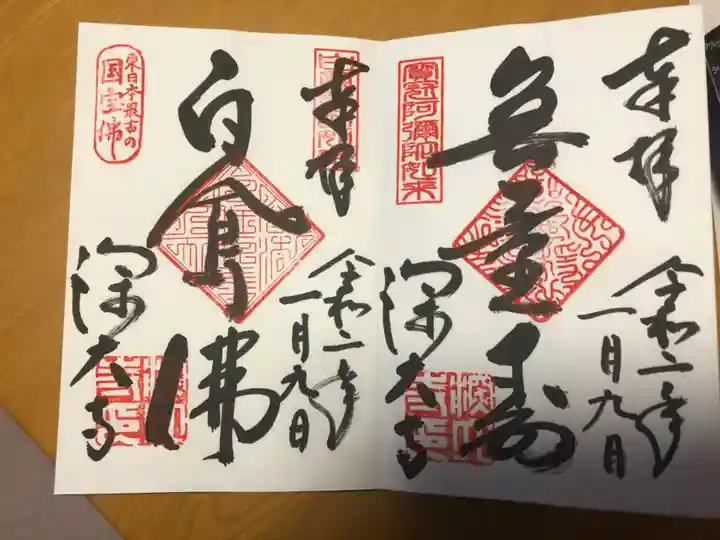 奉拝
令和二年
一月九日
寶冠阿彌陀如来
無量寿
深大寺
奉拝
令和二年
一月九日
白鳳佛
東日本最古の
国宝佛
深大寺